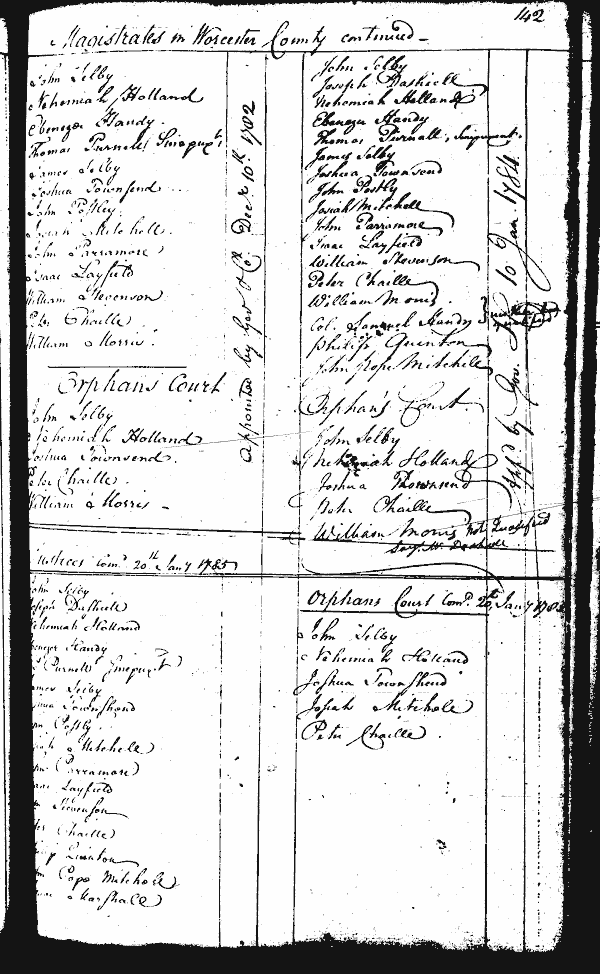 142
Magistrates in Worcester County continued
John Selby
Nehemiah Holland
Ebenezer Handy
Thomas Purnell Sinepuxt
James Selby
Joshua Townsend
John Postley
Josiah Mitchell
John Parramore
Isaac Layfield
William Stevenson
Peter Chaille
William Morris
Orphans Court
John Selby
Nehemiah Holland
Joshua Townsend
Peter Chaille
William Morris
appointed by Gov & Co. Decr 10th 1782
John Selby
Joseph Dashiell
Nehemiah Holland
Ebenezer Handy
Thomas Purnall, Sinepuxent
James Selby
Joshua Townsend
John Postly
Josiah Mitchell
John Parramore
Isaac Layfield
William Stevenson
Peter Chaille
William Morris
Col. Samuel Handy
Philip Quinton
John Pope Mitchell
Orphan's Court
John Selby
Nehemiah Holland
Joshua Townsend
Peter Chaille
William Morris not Qualified
App.d by Gov. 10 Jan. 1784
Justices Com.d 20th Jany 1785
John Selby
Joseph Dashiell
Nehemiah Holland
Ebenezer Handy
Purnell Sinepuxt
James Selby
Joshua Townshend
John Postly
Josiah Mitchell
John Parramore
Isaac Layfield
Wm Stevenson
Peter Chaille
Philip Quinton
John Pope Mitchell
Marshall
Orphans Court Com.d 20th Jany 1785
John Selby
Nehemiah Holland
Joshua Townshend
Josiah Mitchell
Peter Chaille